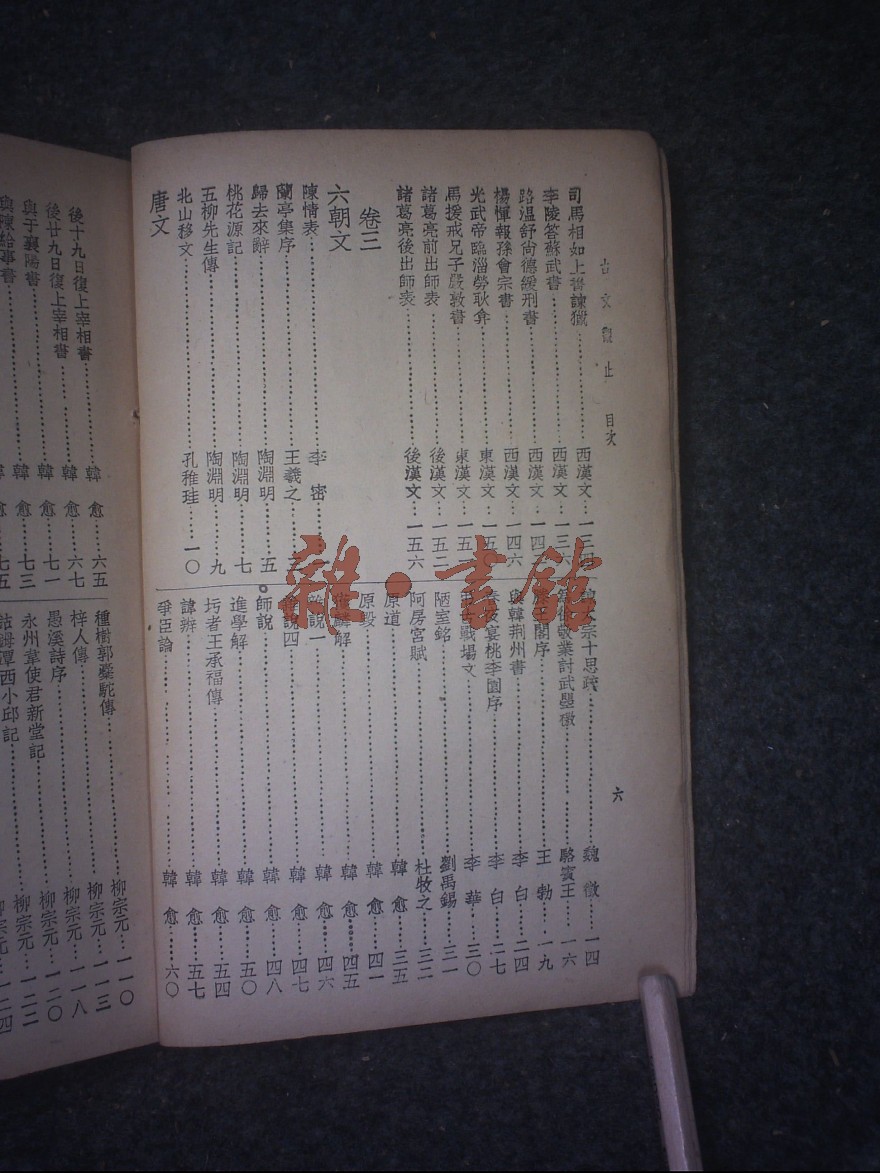 古文觀止 目次
六
司馬相如上書諫獵 西漢文
李陵答蘇武書 西漢文 一三六
路溫舒尚德緩刑書 西漢文
楊惲報孫會宗書 西漢文 一四六
光武帝臨淄勞耿弇 東漢文
馬援戒兄子嚴敦書 東漢文
諸葛亮前出師表 後漢文 一五二
諸葛亮後出師表 後漢文 一五六
卷三
六朝文
陳情表 李密
蘭亭集序 王羲之
歸去來辭 陶淵明 五
桃花源記 陶淵明 七
五柳先生傳 陶淵明 九
北山移文 孔稚珪 一〇
唐文
宗十思疏 魏徵 一四
敬業討武曌檄 駱賓王 一六
閣序 王勃 一九
與韓荊州書 李白 二四
夜宴桃李園序 李白 二七
古戰場文 李華 三〇
陋室銘 劉禹錫 三一
阿房宮賦 杜牧之 三二
原道 韓愈 三五
原毀 韓愈 四一
獲麟解 韓愈 四五
雜說一 韓愈 四六
雜說四 韓愈 四七
師說 韓愈 四八
進學解 韓愈 五〇
圬者王承福傳 韓愈 五四
諱辨 韓愈 五七
爭臣論 韓愈 六〇
雜·書館
後十九日復上宰相書 韓愈 六五
後廿九日復上宰相書 韓愈 六七
與于襄陽書 韓愈 七一
與陳給事書 韓愈 七三
種樹郭橐駝傳 柳宗元 一一〇
梓人傳 柳宗元 一一三
愚溪詩序 柳宗元 一一八
永州韋使君新堂記 柳宗元 一二〇
鈷鉧潭西小邱記 柳宗元 一二二